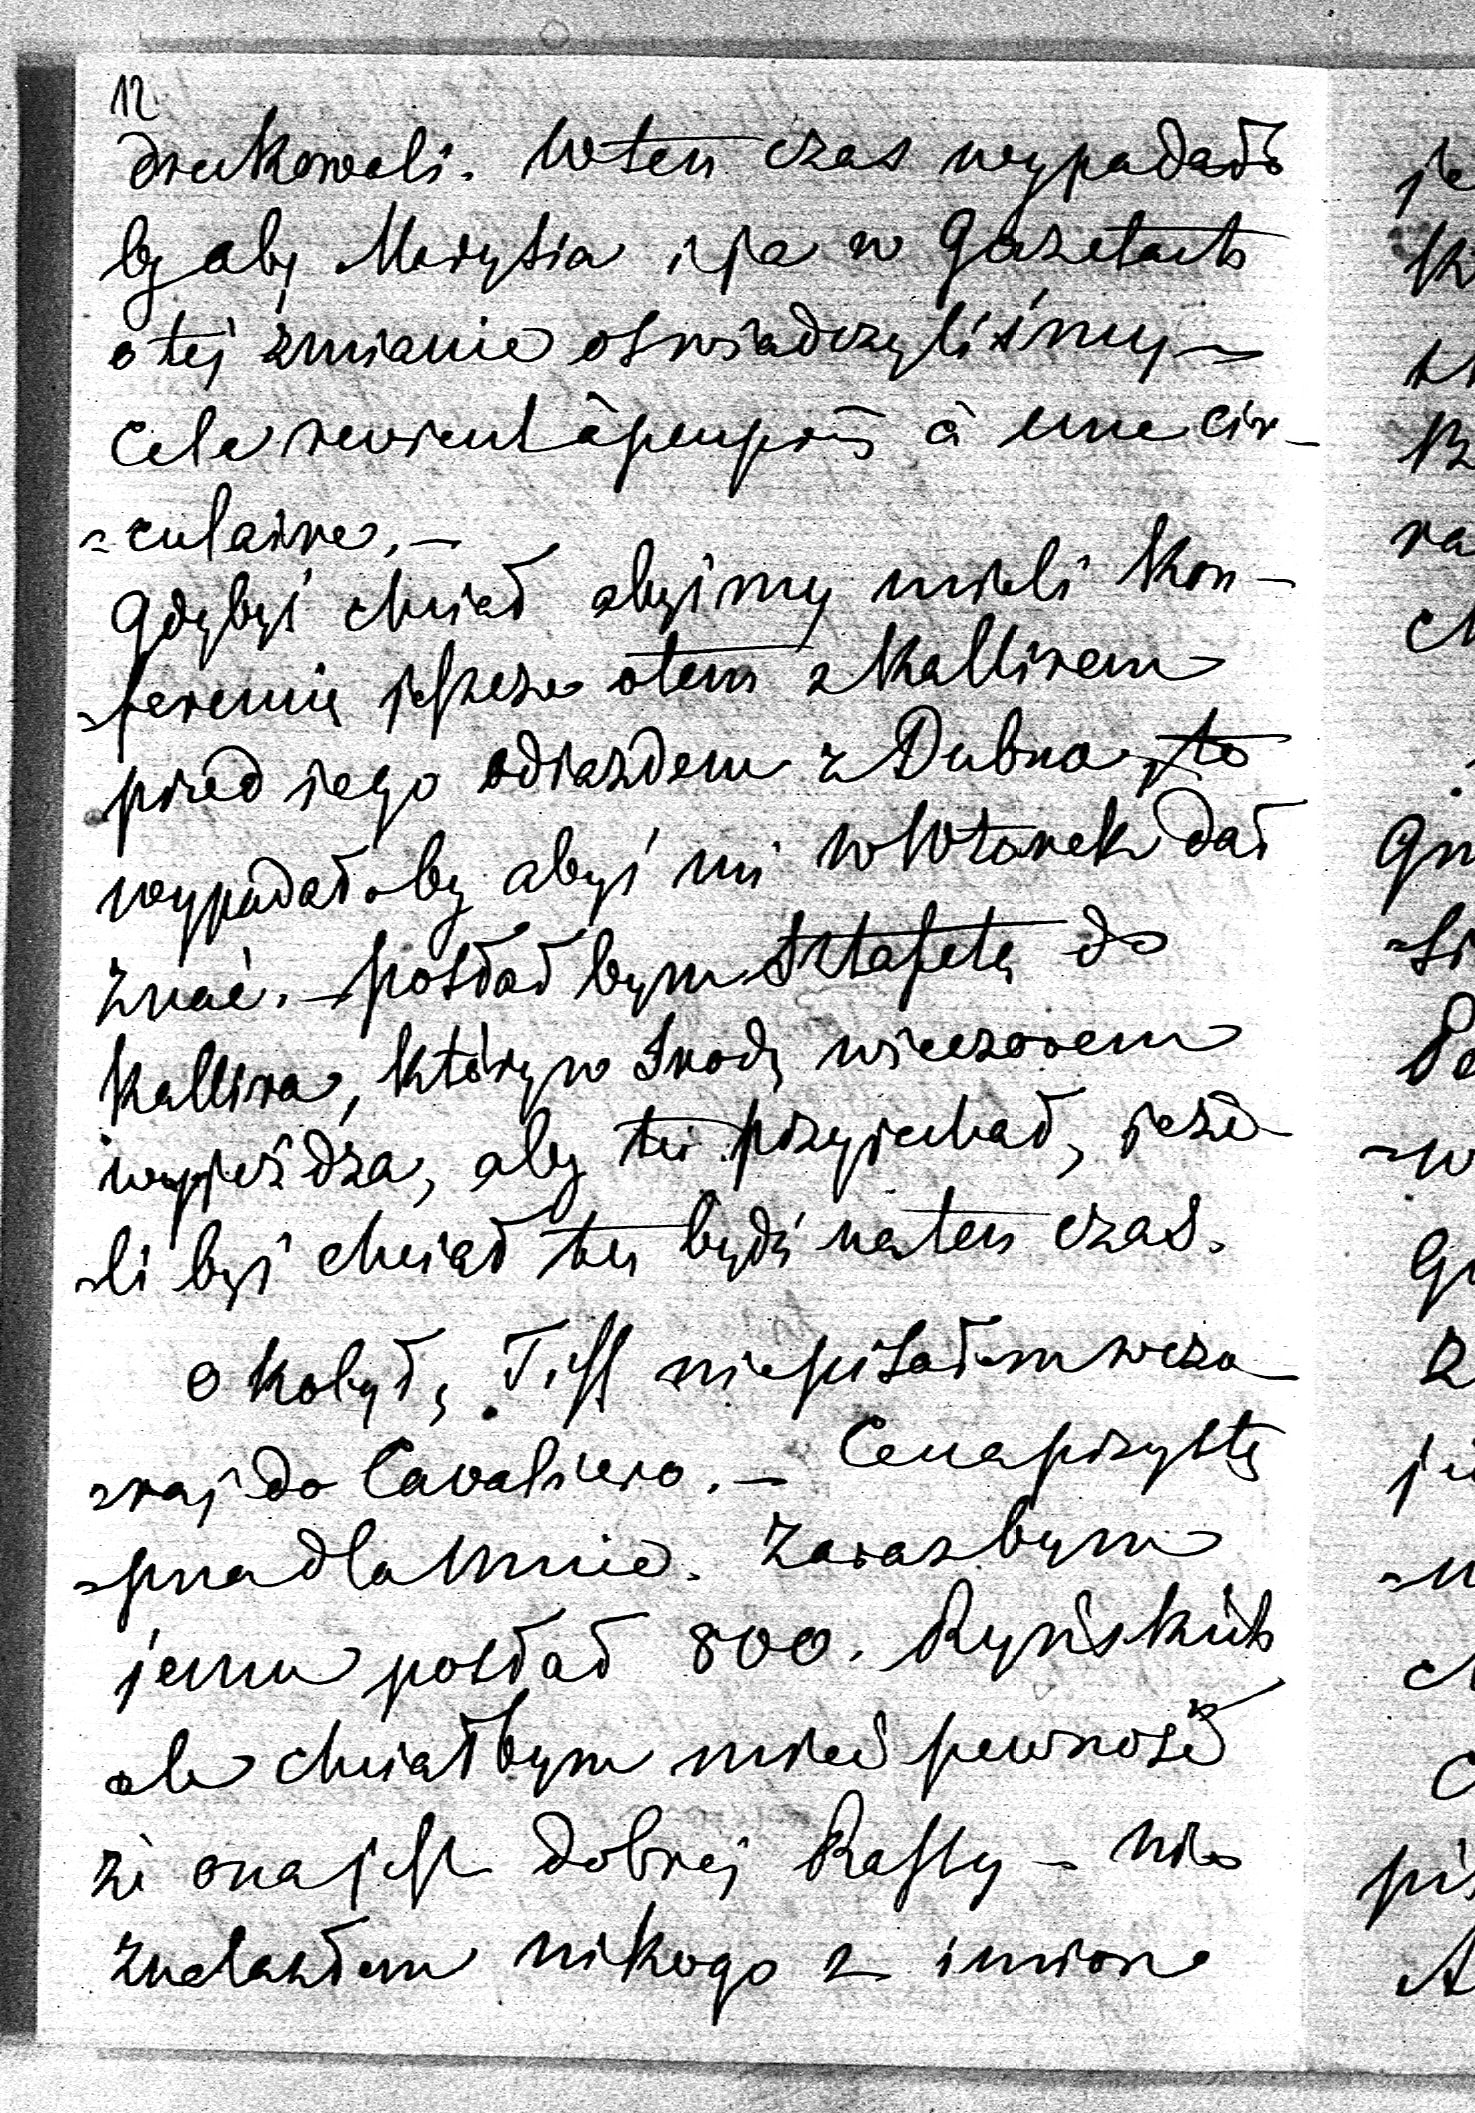 12
drukowali. Wten czas wypadało
by aby Marysia i ja w Gazetach
o tej zmianie oswiadczyliśmy –
Cela revient à peu près à une cir-
=culaire. –
Gdybyś chciał abyśmy mieli kon-
=ferencię jeszcze otem z Kallirem
przed iego odiazdem z Dubna, to
wypadałoby abyś mi w Wtorek dał
znać. – posłał bym Sztafetę do
Kallira, który w Srodę wieczorem
wyjeżdza, aby tu przyjechał, jeże-
=li byś chciał tu bydź naten czas.
O kobyłę Tiff niepisałem wczo-
=raj do Cavaliero. – Cena przystę-
=pna dla mnie. Zaraz bym
jemu posłał 800. Ryńskich
ale chciałbym mieć pewność
że ona jest dobrej Rassy – nie
znalazłem nikogo z imion
je
ra
Gm
pis